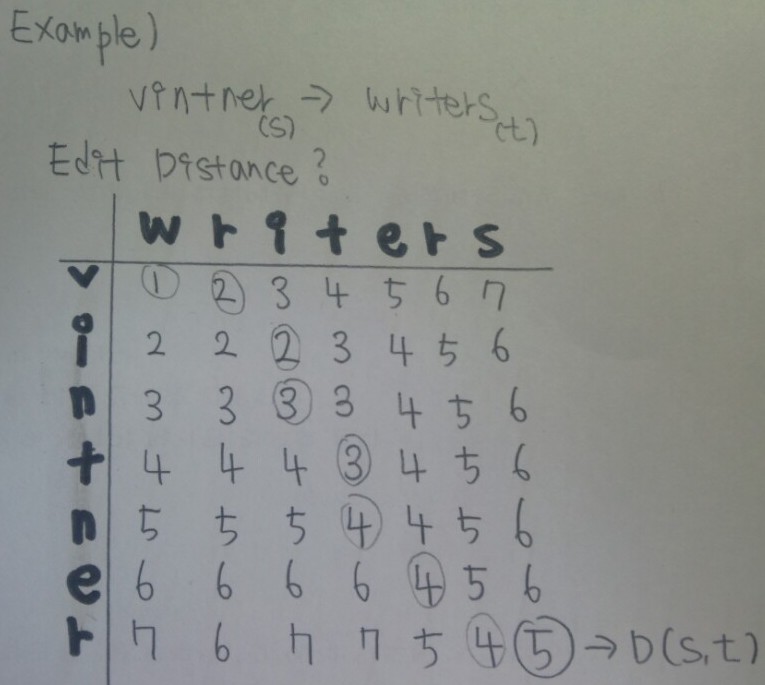 Example)
vintner(s) → writers(t)
Edit Distance?
w r i t e r s
v ① ② 3 4 5 6 7
i 2 2 ② 3 4 5 6
n 3 3 ③ 3 4 5 6
t 4 4 4 ③ 4 5 6
n 5 5 5 ④ 4 5 6
e 6 6 6 6 ④ 5 6
r 7 6 7 7 5 ④ ⑤ → D(s,t)